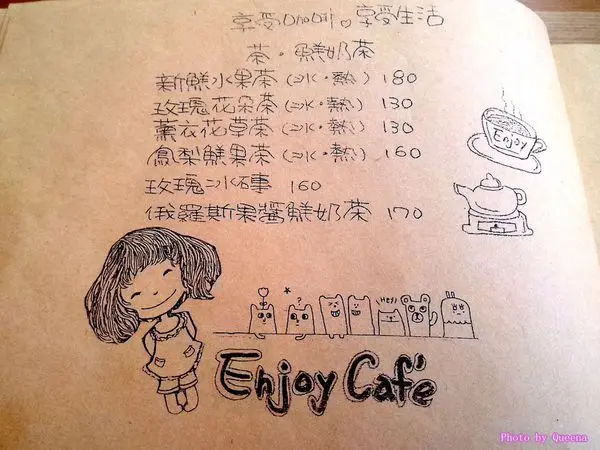 享受 享受生活
茶·鮮奶茶
新鮮水果茶(冰·熱) 180
玫瑰花朵茶(冰·熱) 130
薰衣花草茶(冰·熱) 130
鳳梨鮮果茶(冰·熱) 160
玫瑰冰磚 160
俄羅斯果醬鮮奶茶 170
Enjoy
Hey!
Enjoy Café
Photo by Queena